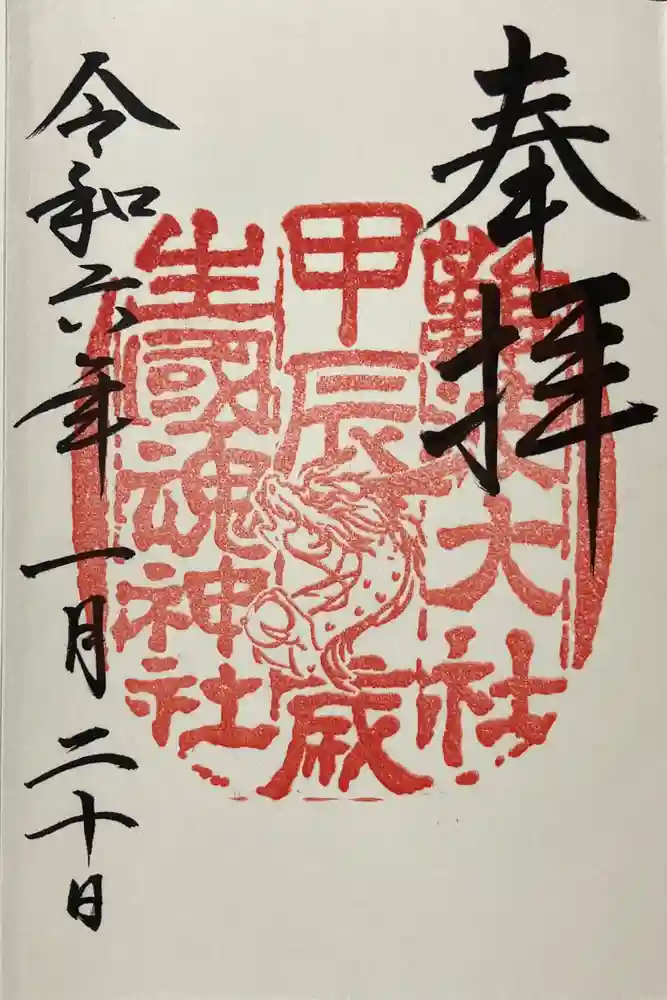 奉拝
難波大社
甲辰歳
生國魂神社
令和六年 一月 二十日